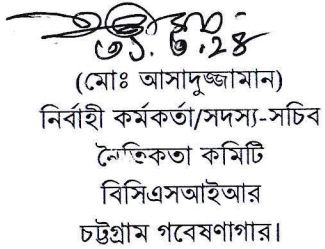 ৩১.৩.২৪
(মোঃ আসাদুজ্জামান)
নির্বাহী কর্মকর্তা/সদস্য-সচিব
নৈতিকতা কমিটি
বিসিএসআইআর
চট্টগ্রাম গবেষণাগার।